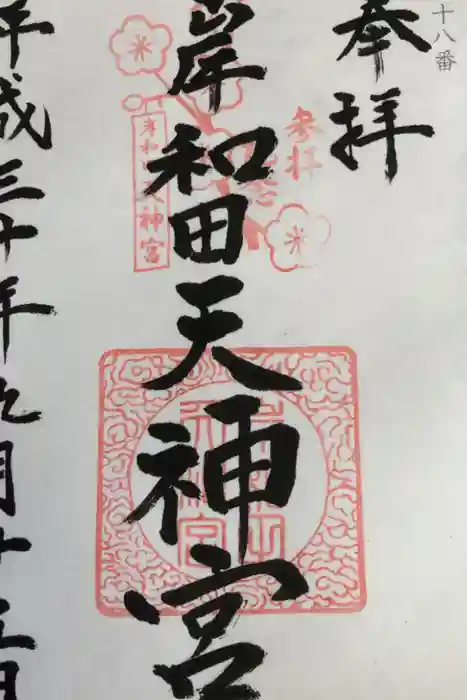 十八番
奉拝
参拝
岸和田天神宮
岸和田天神宮
平成三十年九月十五日